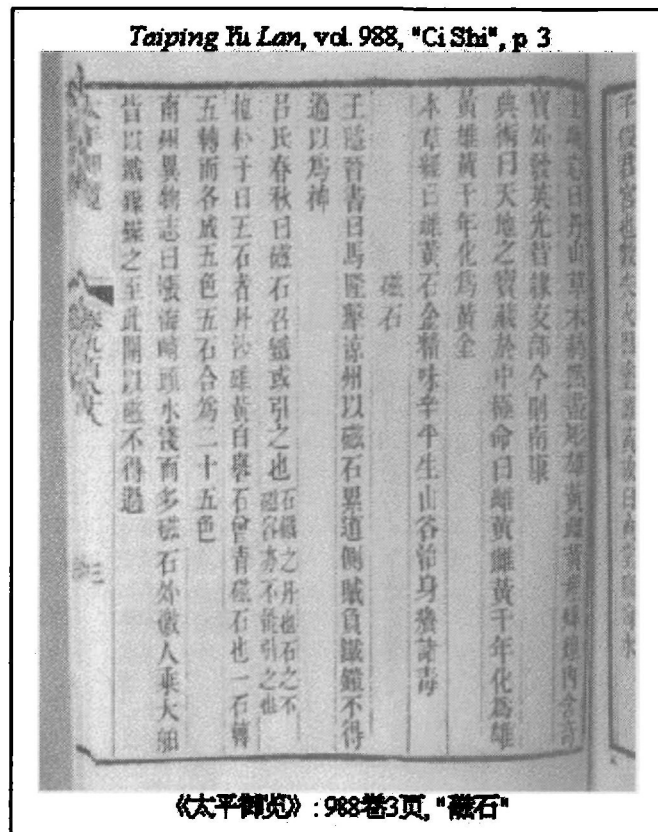 Taiping Yu Lan, vol. 988, "Ci Shi", p 3
志曰丹山草木
寶外發英光皆隸交部今則南康
典術曰天地之寶藏於中極命曰雌黃雌黃千年化爲雄
黃雄黃千年化爲黃金
本草經曰雌黃石金精味辛平生山谷治身癢諸毒
磁石
王隱晉書曰馬隆擊涼州以磁石累道側賊負鐵鎧不得
過以爲神
呂氏春秋曰磁石召鐵或引之也 石鐵之丹也石之不
磁容亦不能引之也
抱朴子曰五石者丹沙雄黃白礜石曾青磁石也一石轉
五轉而各成五色五石合爲二十五色
南州異物志曰漲海崎頭水淺而多磁石外徼人乘大舶
皆以鐵鍱鍱之至此關以磁不得過
太平御覽 卷九百八十八 三
《太平御览》: 988卷3页, "磁石"